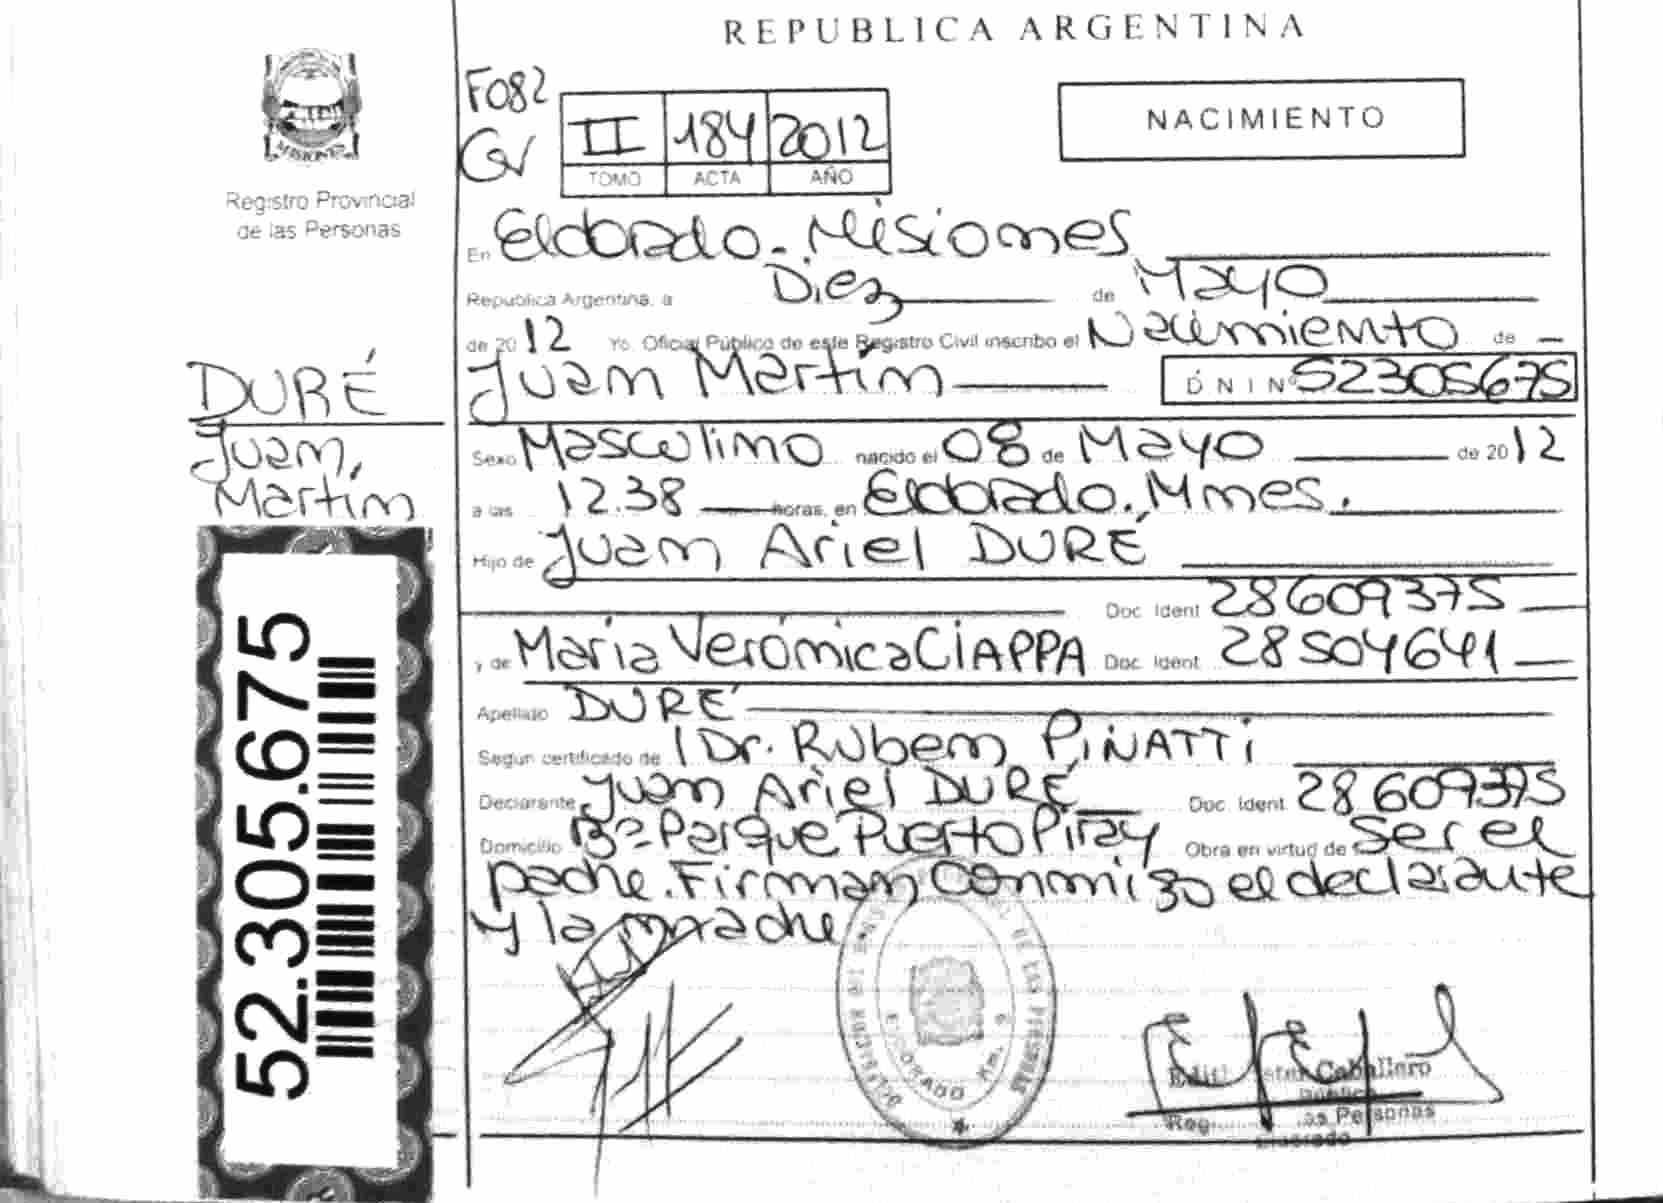 REPUBLICA ARGENTINA
MISIONES
Registro Provincial
de las Personas
F082
II 184 2012
TOMO ACTA AÑO
NACIMIENTO
En Eldorado - Misiones
Republica Argentina, a Diez de Mayo
de 2012 Yo, Oficial Público de este Registro Civil inscribo el Nacimiento de
Juan Martín DNI Nº 52305675
DURÉ
Juan,
Martín
Sexo Masculino nacido el 08 de Mayo de 2012
a las 12.38 horas, en Eldorado. Mnes.
Hijo de Juan Ariel DURÉ
Doc. Ident 28609375
y de Maria Verónica CIAPPA Doc. Ident 28504641
Apellido DURÉ
Segun certificado de Dr. Ruben PINATTI
Declarante Juan Ariel DURÉ Doc. Ident 28609375
Domicilio Bº Parque Puerto Piray Obra en virtud de Ser el
padre. Firman conmigo el declarante
y la madre
52.305.675
ELDORADO
DE LAS PERSONAS
Caballero
as Personas
Eldorado